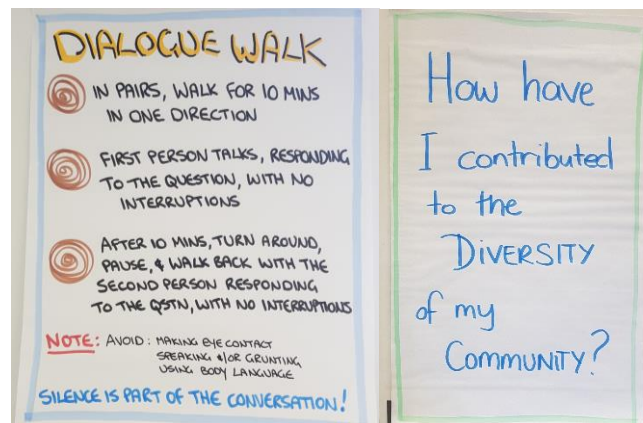 DIALOGUE WALK
IN PAIRS, WALK FOR 10 MINS
IN ONE DIRECTION
FIRST PERSON TALKS, RESPONDING
TO THE QUESTION, WITH NO
INTERRUPTIONS
AFTER 10 MINS, TURN AROUND,
PAUSE, & WALK BACK WITH THE
SECOND PERSON RESPONDING
TO THE QSTN, WITH NO INTERRUPTIONS
NOTE: AVOID: MAKING EYE CONTACT
SPEAKING &/OR GRUNTING
USING BODY LANGUAGE
SILENCE IS PART OF THE CONVERSATION!
How have
I contributed
to the
DIVERSITY
of my
COMMUNITY?